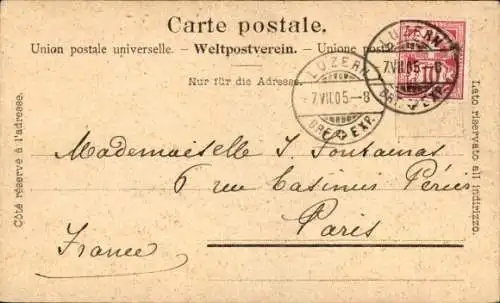 Carte postale.
Union postale universelle. – Weltpostverein. – Unione posta
Nur für die Adresse.
LUZERN
7.VII.05–8
BRF. EXP.
LUZERN
7.VII.05–8
BRF. EXP.
10
Côté réservé à l'adresse.
Lato riservato all indirizzo.
Mademoiselle J. Fontainas
6 rue Casimir Périer
Paris
France